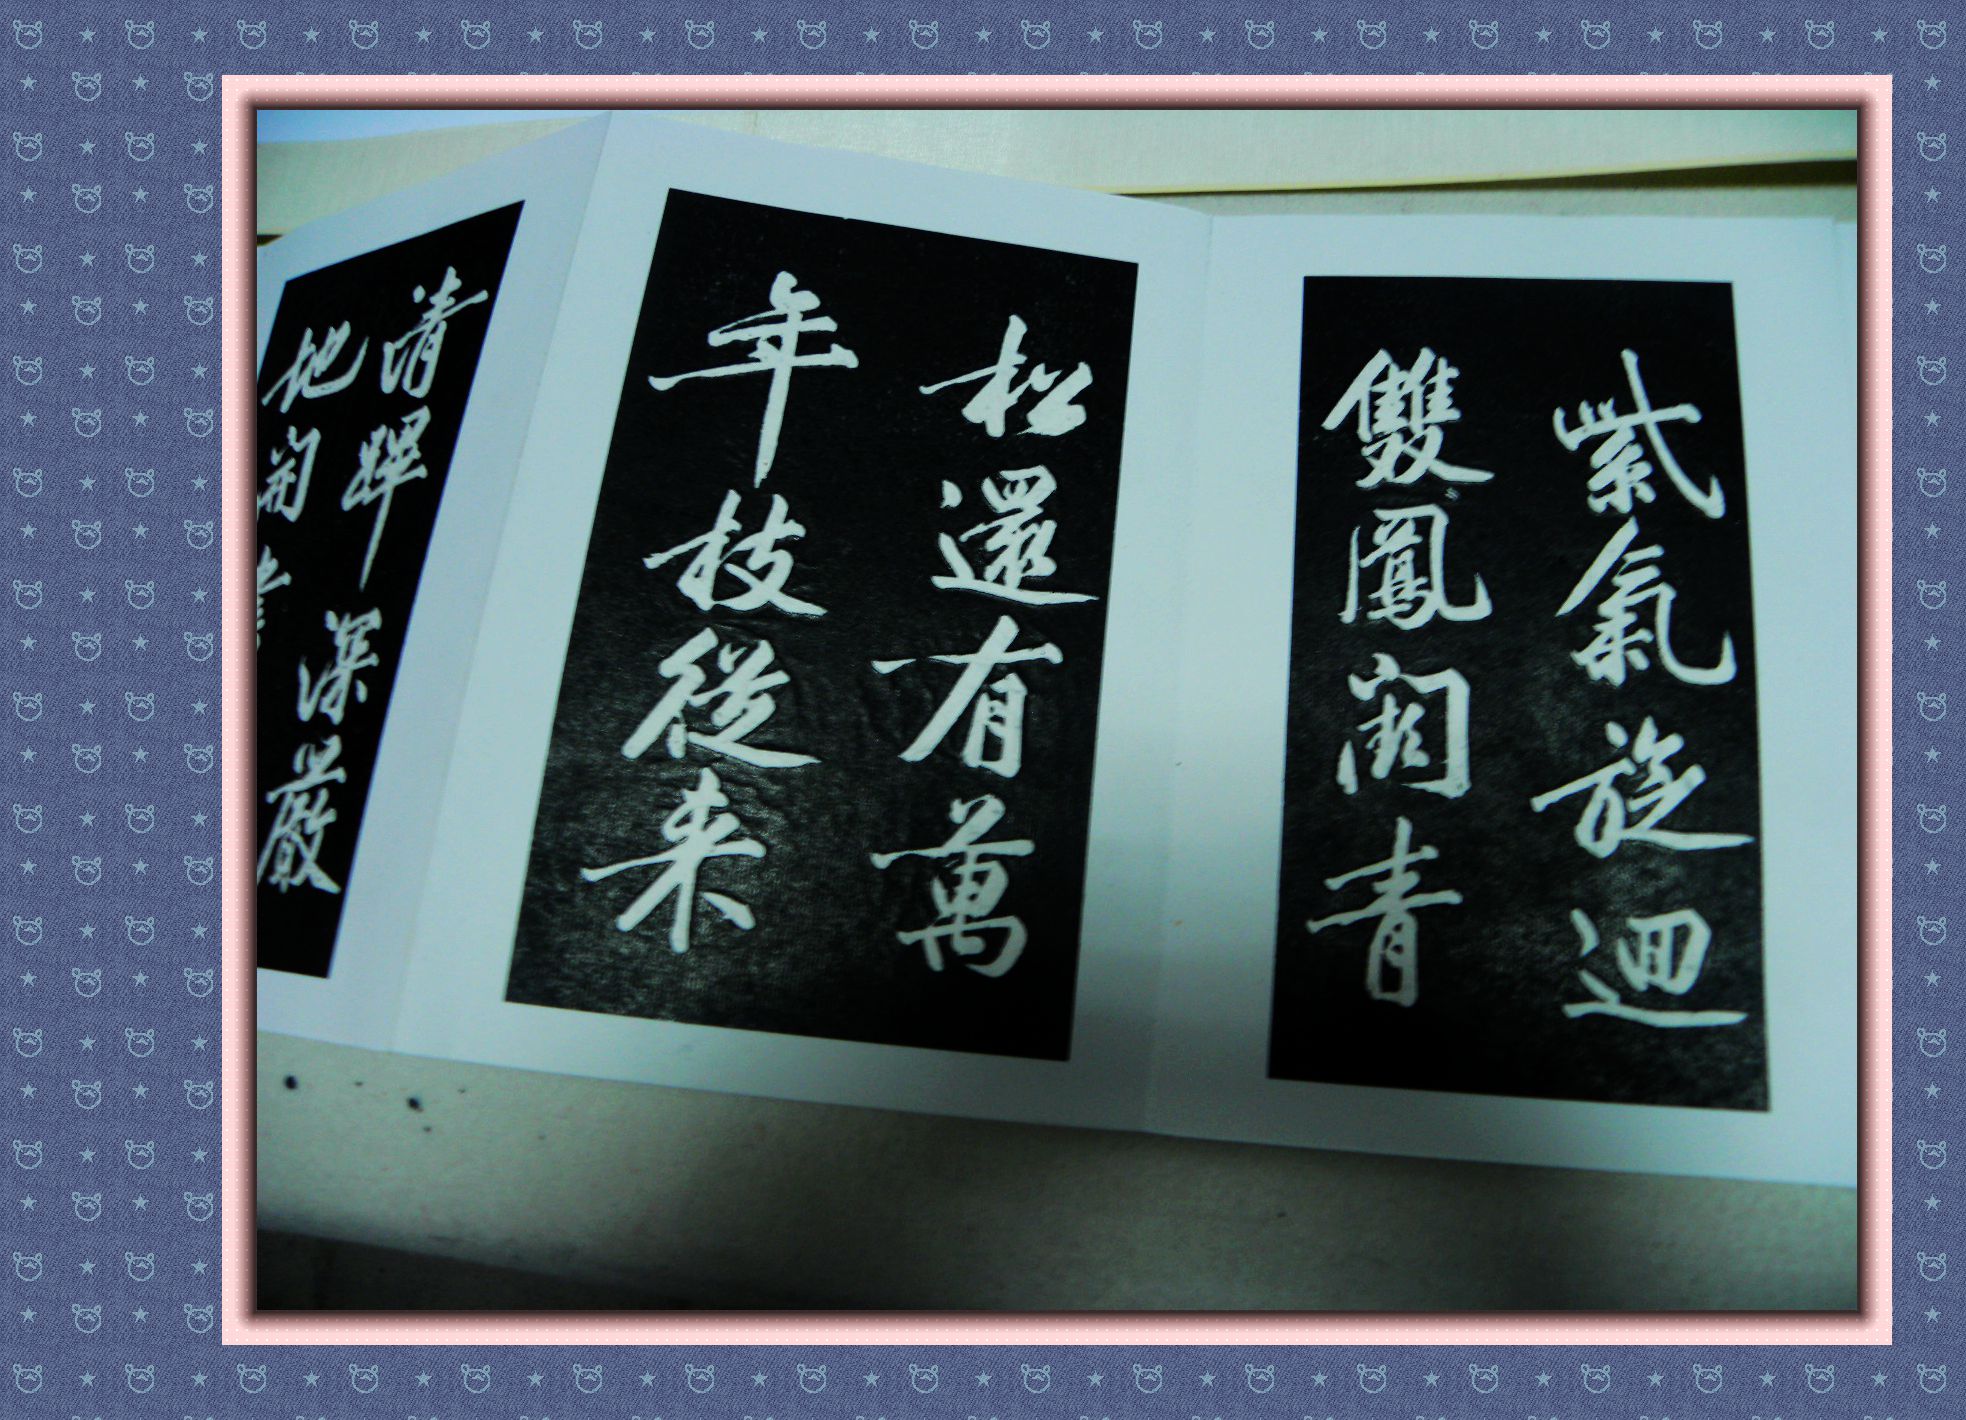 紫氣旋迴
雙鳳闕青
松還有萬
年枝從来
清暉深嚴
地開